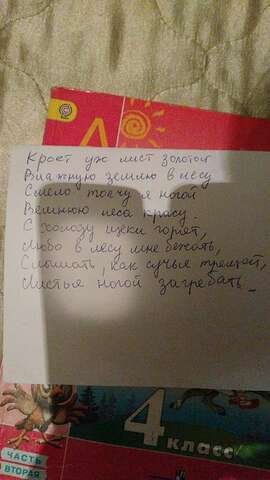 Кроет уж лист золотой
Влажную землю в лесу
Смело топчу я ногой
Вешнюю леса красу.
С холоду щеки горят,
Любо в лесу мне бежать,
Слышать, как сучья трещат,
Листья ногой загребать.
4 класс
ЧАСТЬ
ВТОРАЯ